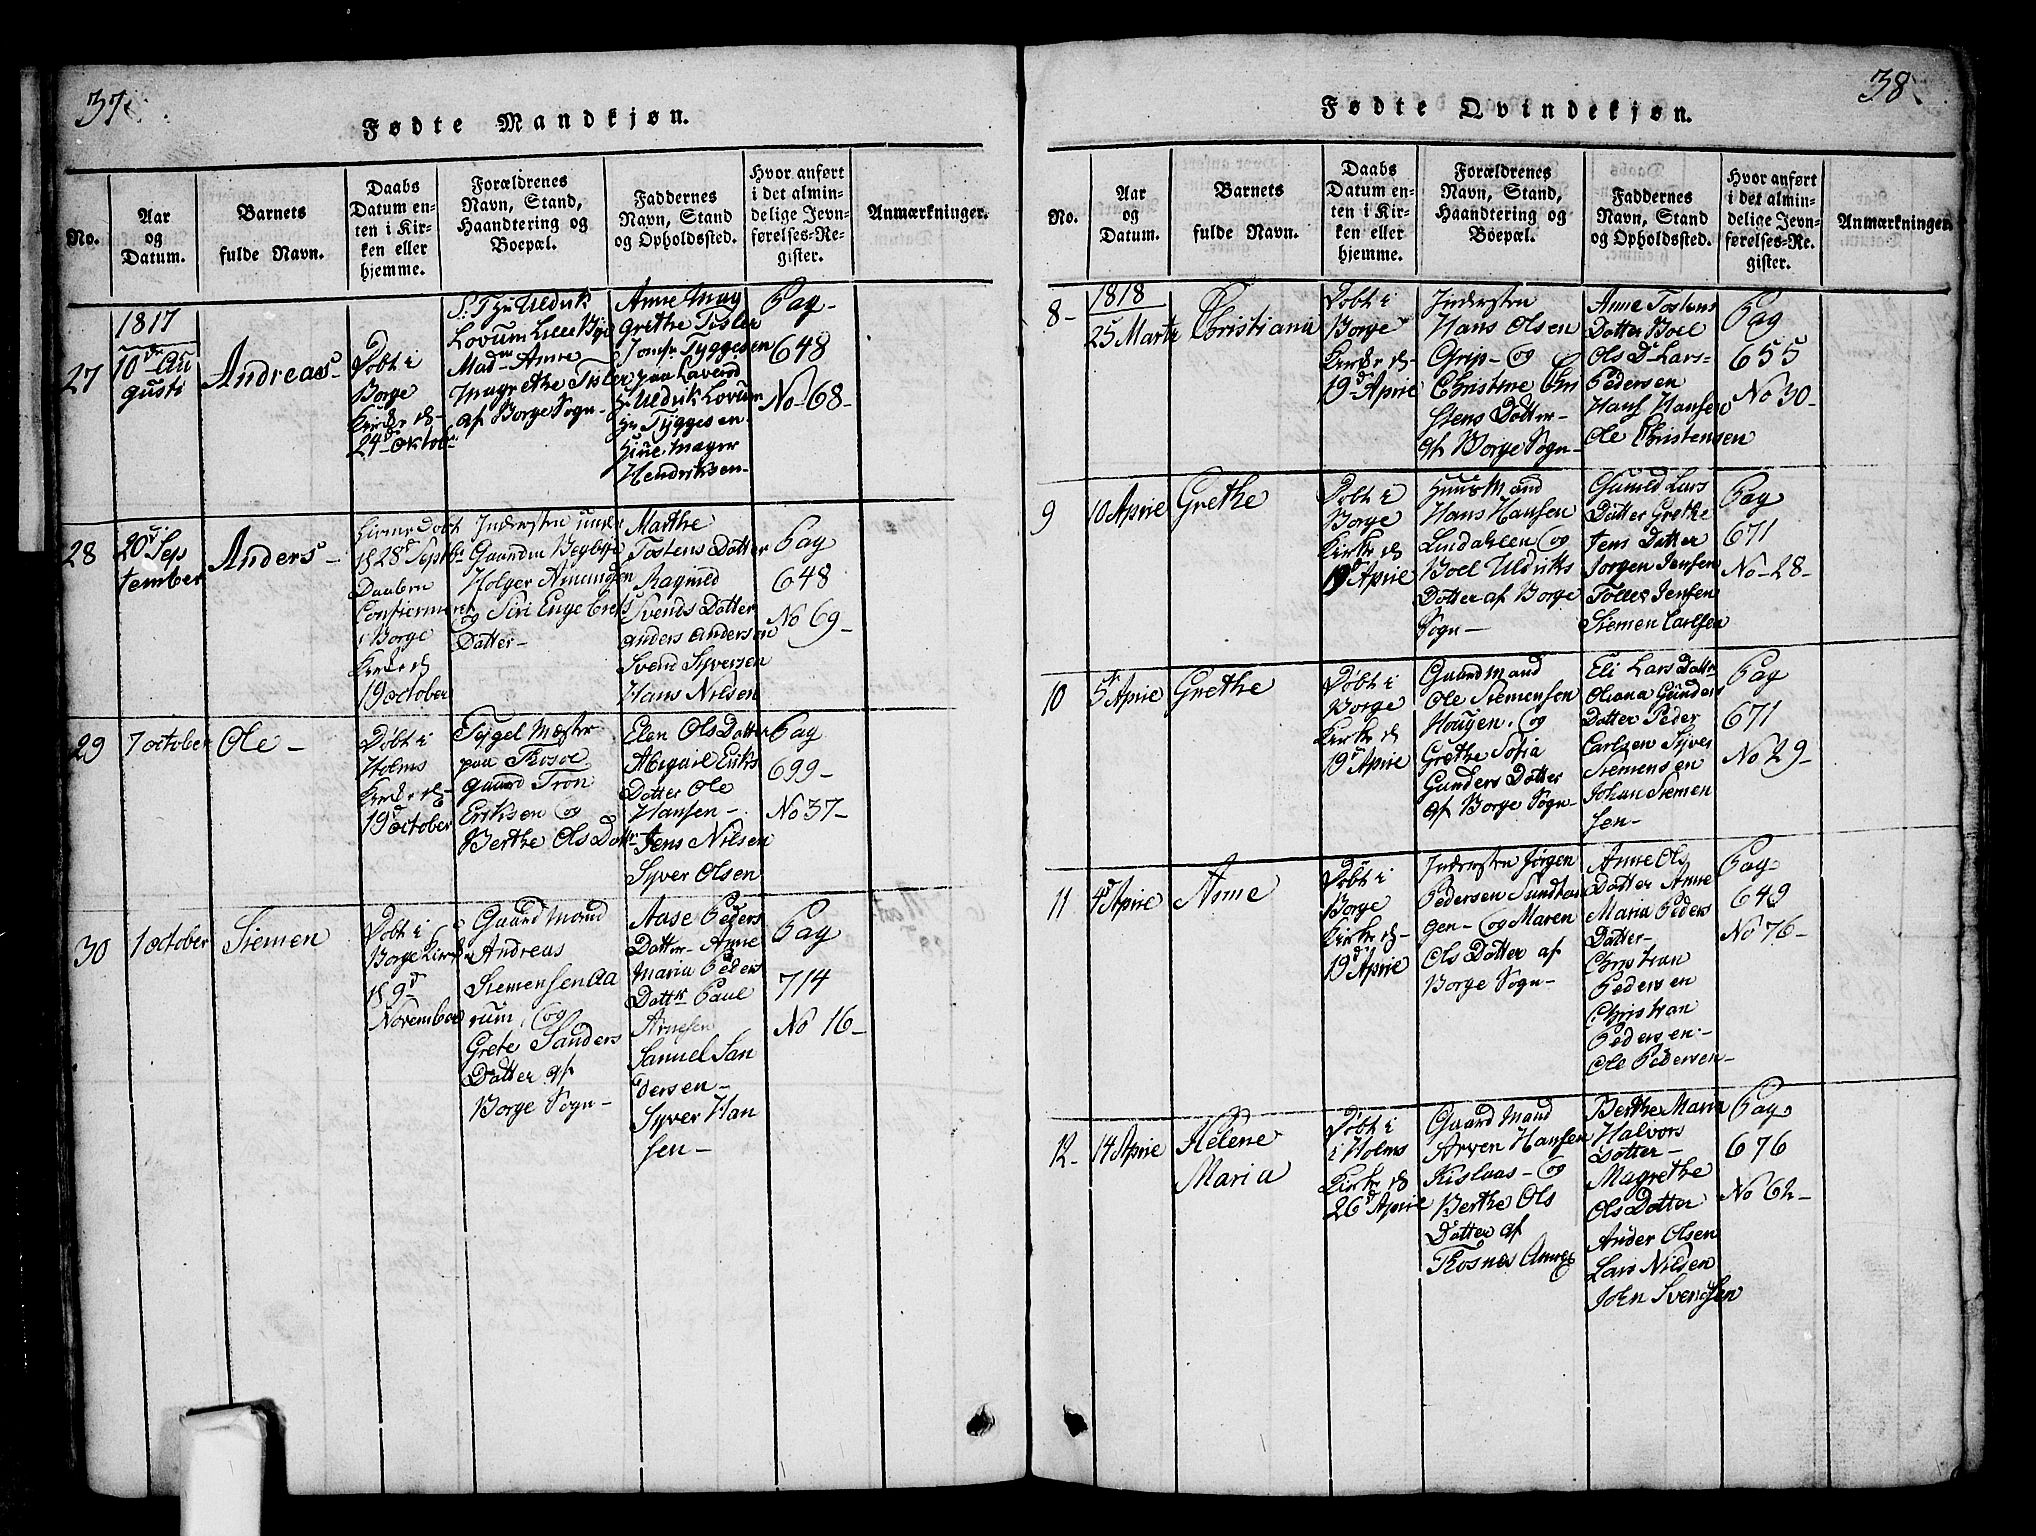 37.
Fødte Mandkjøn.
No.
Aar
og
Datum.
Barnets
fulde Navn.
Daabs
Datum en-
ten i Kir-
ken eller
hjemme.
Forældrenes
Navn, Stand,
Haandtering og
Boepæl.
Faddernes
Navn, Stand
og Opholdssted.
Hvor anført
i det almin-
delige Jevn-
førelses-Re-
gister.
Anmærkninger.
27
1817
10de Au
gusti
Andreas-
Døbt i
Borge
Kirke d
24 Oktob
Uldrik
Lovum Lille
Mad Anne
Magrethe Tisler
af Borge Sogn-
Anne Mag
Grethe Tisler
Jomfr Tyggesen
paa
Hr Uldrik Lovum
Hr Tyggesen
Mayer
Hendriksen-
Pag-
648
No-68-
28
20d Sep
tember
Anders-
Døbt
28d Septbr
Daaben
Confiermeret
i Borge
Kirke d
19 october
Indersten under
Gaarden Begbye
Holger
og Siri Engebrets
Datter-
Marthe
Tostens Datter
Ragnild
Svends Datter
anders anderson
Svend Syversen
Hans Nilsen
Pag
648
No 69-
29
7 october
Ole-
Døbt i
Holms
Kirke d-
19d october
Tygel Mæster
paa Thosøe
gaard Tron
Eriksen og
Berthe Ols Datter-
Elen Ols Datter
Abigael Eriks
Datter Ole
Hansen-
Jens Nilsen
Syver Olsen
Pag
699-
No 37-
30
1 october
Siemen
Døbt i
Borge Kirke
d 9d
November
Gaard Mand
Andreas
Siemensen Aa
rum, og
Grete Sanders
Datter af
Borge Sogn-
Aase Peders
Datter- Anne
Maria Peders
Dattr Paul
Arnesen
Samuel San
dersen-
Syver Han
sen-
Pag
714
No 16-
38
Fødte Qvindekjøn.
No.
Aar
og
Datum.
Barnets
fulde Navn.
Daabs
Datum en-
ten i Kir-
ken eller
hjemme.
Forældrenes
Navn, Stand,
Haandtering og
Boepæl.
Faddernes
Navn, Stand
og Opholdssted.
Hvor anført
i det almin-
delige Jevn-
førelses-Re-
gister.
Anmærkninger.
8-
1818
25 Marts
Christiana
Døbt i
Borge
Kirke d-
19d Aprie
Indersten
Hans Olsen
Grip- og
Christine Chri
stens Datter-
af Borge Sogn-
Anne Tostens
Datter Boel
Ols D- Lars-
Pedersen
Hans Hansen
Ole Christensen
Pag
655
No 30-
9
10 Aprie
Grethe
Døbt i
Borge
Kirke d
19d Aprie
Huus Mand
Hans Hansen
Lindahlen og
Boel Uldriks
Datter af Borge
Sogn-
Gunild Lars
Datter Grethe
Jens Datter
Jorgen Jensen
Tolles Jensen
Siemen Carlsen
Pag
671
No-28-
10
5d Aprie
Grethe
Døbt i
Borge
Kirke d
19d Aprie
Gaard Mand
Ole Siemensen
Hougen. og
Grethe Sofia
Gunders Datter
af Borge Sogn-
Eli Lars Dattr
Oliana Gunders
Datter Peder
Carlsen Syver
Siemensen
Johan Siemen
sen-
Pag
671
No 29-
11
4d Aprie
Anne
Døbt i
Borge
Kirke d-
19d Aprie
Indersten Jørgen
Pedersen Sundhau
gen- og Maren
Ols Datter af
Borge Sogn-
Anne Ols
Datter Anne
Maria Peders
Datter-
Christian
Pedersen
Christian
Pedersen-
Ole Pedersen-
Pag-
649
No 76-
12-
14 Aprie
Helene
Maria
Døbt i
i Holms
Kirke d
26d Aprie
Gaard Mand
Arven Hansen
Kislaas- og
Berthe Ols
Datter af
Thosnes Annex
Berthe Maria
Halvors
Datter-
Magrethe
Ols Datter
Ander Olsen
Lars Nilsen
John Svendsen
Pag.
676
No 62-